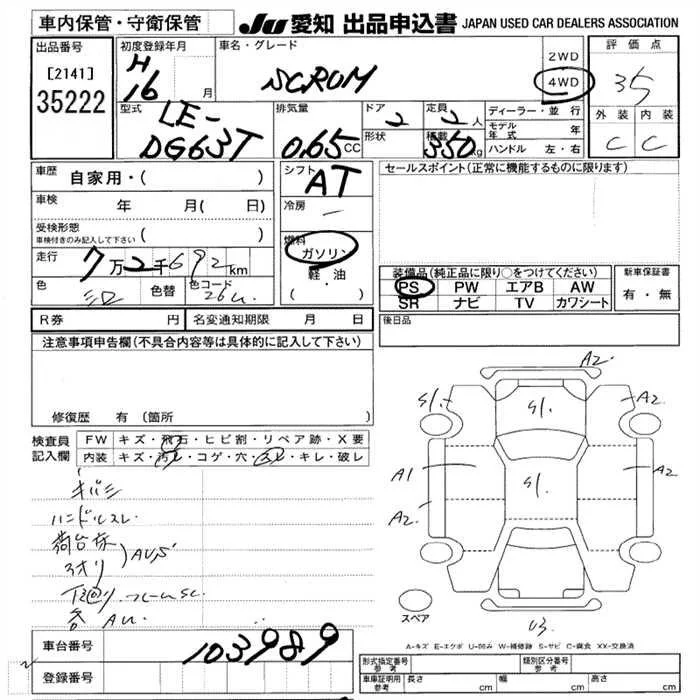 車内保管・守衛保管
JU 愛知 出品申込書 JAPAN USED CAR DEALERS ASSOCIATION
出品番号
[2141]
35222
初度登録年月
H
16 月
車名・グレード
SCRUM
2WD
4WD
評価点
35
外装 内装
C C
型式
LE-
DG63T
排気量
0.65 CC
ドア
2
形状
定員
2 人
積載
350 kg
ディーラー・並行
モデル年式 年
ハンドル 左・右
車歴
自家用・( )
車検 年 月( 日)
受検形態
車検付きのみ記入して下さい ( )
走行
7万2千692km
色 色替 色コード
26U
シフト
AT
冷房
燃料
ガソリン
軽・油
( ・ )
セールスポイント(正常に機能するものに限ります)
装備品(純正品に限り○をつけてください)
PS PW エアB AW
SR ナビ TV カワシート
新車保証書
有・無
R券 円 名変通知期限 月 日
後日品
注意事項申告欄(不具合内容等は具体的に記入して下さい)
修復歴 有 (箇所 )
検査員
記入欄
FW キズ・飛石・ヒビ割・リペア跡・X要
内装 キズ・汚レ・コゲ・穴・スレ・キレ・破レ
キバミ
ハンドルスレ
荷台床
アオリ
AU5
A2
S1. A2
S1.
A1 S1. A2
A2
U3
スペア
A-キズ E-エクボ U-凹み W-補修跡 S-サビ C-腐食 XX-交換済
車台番号
103989
登録番号
形式指定番号
参考
類別区分番号
参考
車庫証明用
参考
長さ cm 幅 cm 高さ cm